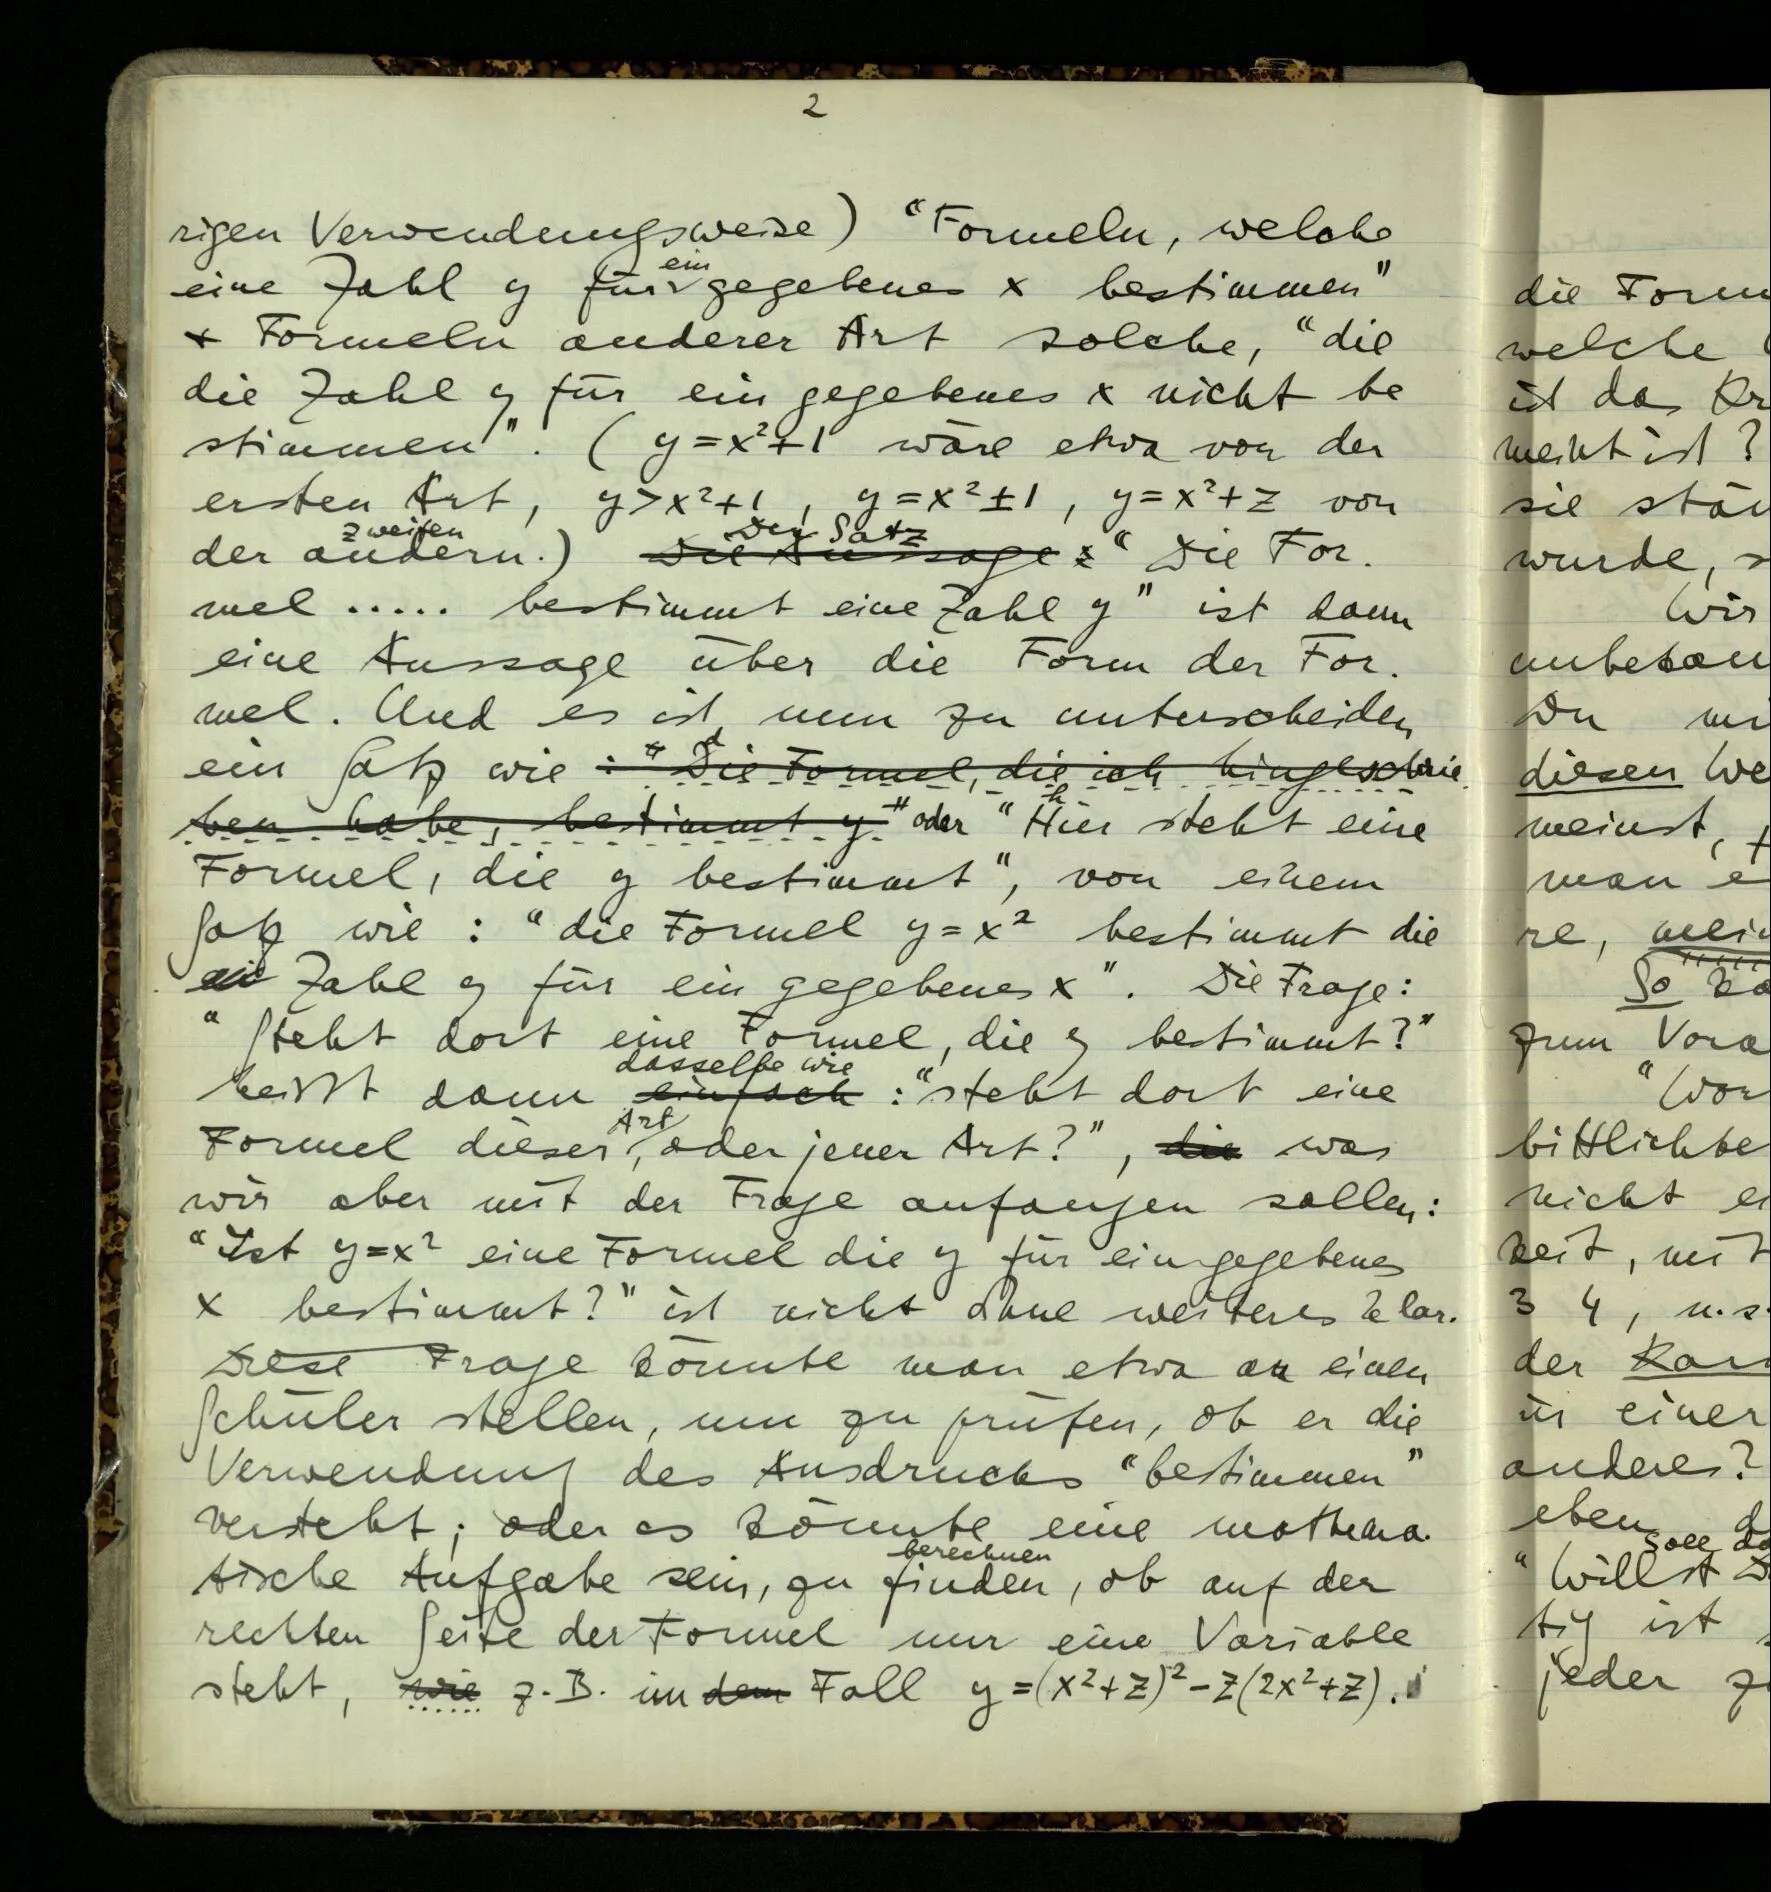 2
rigen Verwendungsweise) “Formeln, welche
ein
eine Zahl y für gegebenes x bestimmen”
+ Formeln anderer Art solche, “die
die Zahl y für ein gegebenes x nicht be
stimmen”. ( y=x²+1 wäre etwa von der
ersten Art, y>x²+1, y=x²±1, y=x²+z von
zweiten Der Satz
der andern.) Die Aussage : “Die For-
mel ..... bestimmt eine Zahl y” ist dann
eine Aussage über die Form der For-
mel. Und es ist nun zu unterscheiden
d
ein Satz wie : “Die Formel, die ich hingeschrie
h
ben habe, bestimmt y” oder “Hier steht eine
Formel, die y bestimmt”, von einem
Satz wie : “die Formel y=x² bestimmt die
Zahl y für ein gegebenes x”. Die Frage:
“Steht dort eine Formel, die y bestimmt?”
dasselbe wie
heißt dann einfach : “steht dort eine
Art
Formel dieser, oder jener Art?”, die was
wir aber mit der Frage anfangen sollen:
“Ist y=x² eine Formel die y für ein gegebenes
x bestimmt?” ist nicht ohne weiteres klar.
Diese Frage könnte man etwa an einen
Schüler stellen, um zu prüfen, ob er die
Verwendung des Ausdrucks “bestimmen”
versteht; oder es könnte eine mathema-
berechnen
tische Aufgabe sein, zu finden, ob auf der
rechten Seite der Formel nur eine Variable
steht, wie z.B. im dem Fall y=(x²+z)²-z(2x²+z).
die Form
welche
ist das
meint ist?
sie
wurde,
Wir
Du
diesen We
meinst, +
man e
re, mein
So
zum
“Wor
nicht
keit, mit
3 4, u.s.
der
in einer
anderes?
eben d
soll
“Willst
tig ist
jeder